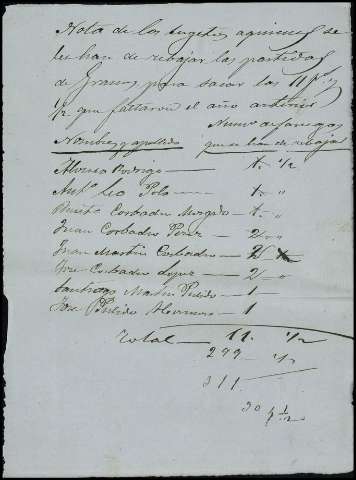 Nota de los sugetos a quienes se
les han de rebajar las partidas
de granos para sacar las 11 fs y
1/2 que faltaron el año anterior
Numo de fanegas
Nombres y apellidos que se han de rebajar
Alonso Rodrigo — 1. 1/2
Anto Leo Polo — 1. "
Benito Corbacho Morgado — 1. "
Juan Corbacho Perez — 2. "
Juan Martin Corbacho — 2
Jose Corbacho Lopez — 2. "
Santiago Martin Pulido — 1
Jose Pulido — 1
Total — 11. 1/2
299 1/2
311
30 1/2